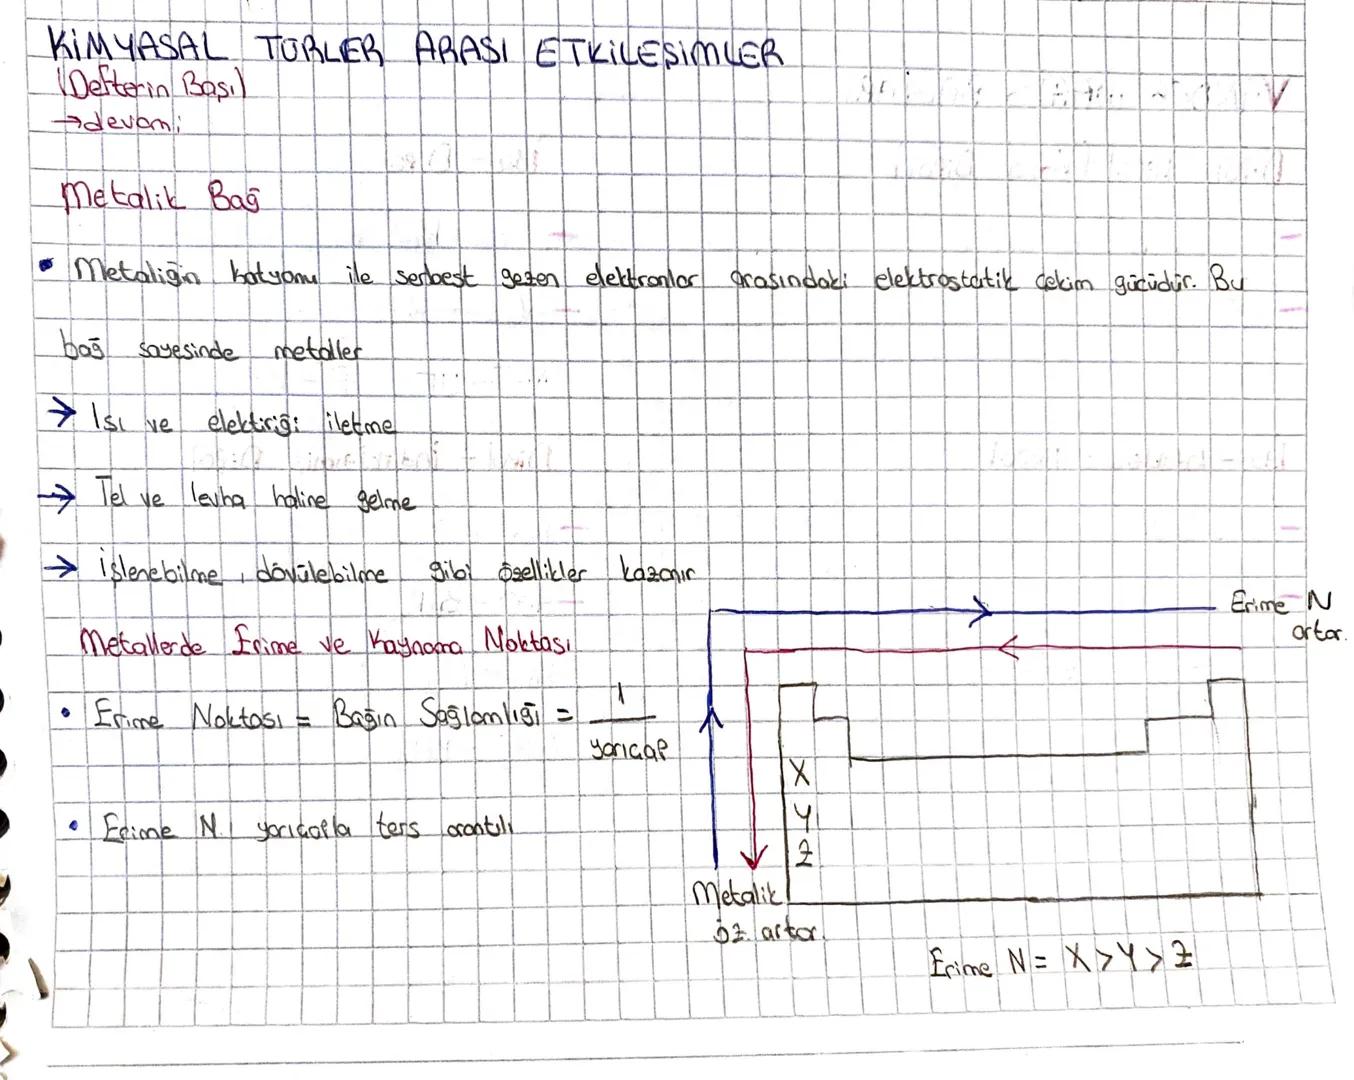 KİMYASAL TÜRLER ARASI ETKİLEŞİMLER
(Defterin Başı)
→devamı;
Metalik Bağ
• Metaliğin katyonu ile serbest gezen elektronlar arasındaki elektrostatik çekim gücüdür. Bu
bağ sayesinde metaller
→ Isı ve elektiriği iletme
→ Tel ve levha haline gelme
→ işlenebilme, dövülebilme gibi özellikler kazanır
Metallerde Erime ve Kaynama Noktası
• Erime Noktası = Bağın Sağlamlığı = 1/yarıçap
• Erime N. yarıçapla ters orantılı
Erime N
artar.
X
Y
Z
Metalik
öz. artar.
Erime N = X>Y>Z